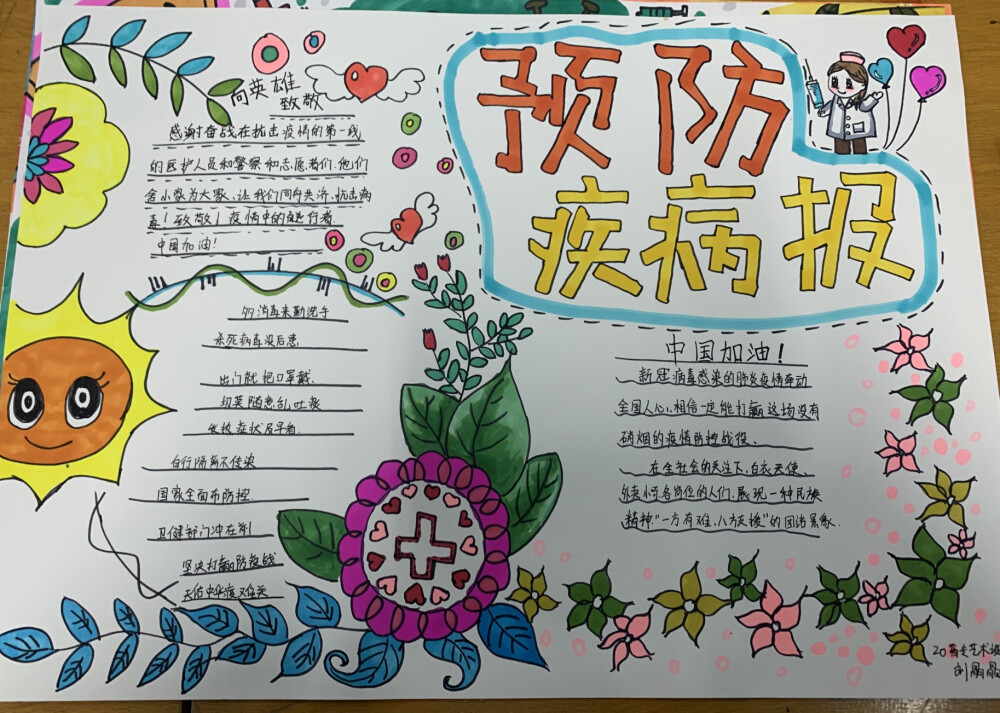 预防
疾病报
向英雄
致敬
感谢奋战在抗击疫情的第一线
的医护人员和警察和志愿者们.他们
舍小家为大家、让我们同舟共济,抗击病
毒!致敬!疫情中的逆行者
中国加油!
勿消毒来勤洗手
杀死病毒没后患
出门就把口罩戴.
切莫随意乱吐痰
发按症状及早询.
自行隔离不传染
国家全面布防控.
卫健部门冲在前
坚决打赢防疫战
天佑中华度难关
中国加油!
新冠病毒感染的肺炎疫情牵动
全国人心,相信一定能打赢这场没有
硝烟的疫情防控战役、
在全社会的关注下、白衣天使、
外卖小哥各岗位的人们、展现一种民族
精神"一方有难、八方支援"的团结景象.
20
刘